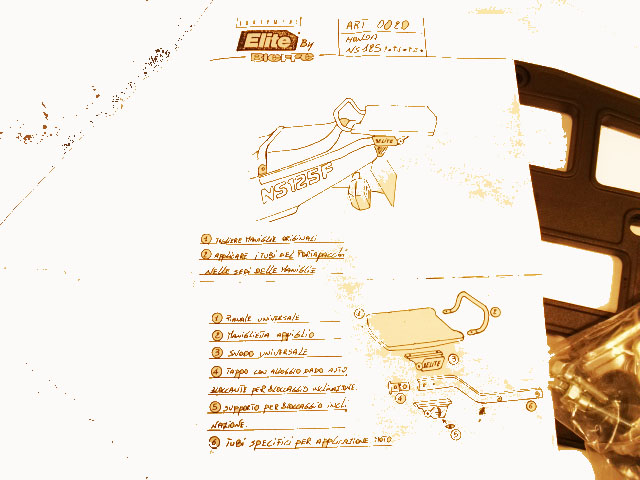 EQUIPMENT
Elite By
BIEFFE
ART 0020
HONDA
NS 125
ELITE
NS125F
1 TOGLIERE MANIGLIE ORIGINALI
2 APPLICARE I TUBI DEL PORTAPACCHI
NELLE SEDI DELLE MANIGLIE
1 PIANALE UNIVERSALE
2 MANIGLIETTA APPIGLIO
3 SNODO UNIVERSALE
4 TAPPO CON ALLOGGIO DADO AUTO
BLOCCANTE PER BLOCCAGGIO INCLINAZIONE.
5 SUPPORTO PER BLOCCAGGIO INCLI
NAZIONE.
6 TUBI SPECIFICI PER APPLICAZIONE MOTO
1
2
ELITE
3
4
6
5